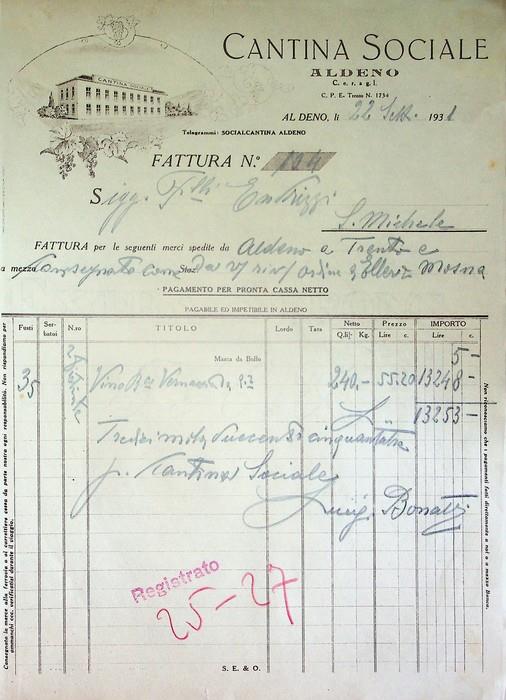 CANTINA SOCIALE
CANTINA SOCIALE
ALDENO
C. e r. a g. l.
C. P. E. Trento N. 1734
ALDENO, li 22 Sett. 1931
Telegrammi: SOCIALCANTINA ALDENO
FATTURA N.° 194
Sigg. F.lli Endrizzi
S. Michele
FATTURA per le seguenti merci spedite da Aldeno a Trento e
a mezzo consegnato come da Vs/ riv/ ordine a Mosna
PAGAMENTO PER PRONTA CASSA NETTO
PAGABILE ED IMPETIBILE IN ALDENO
Fusti Ser-batoi N.ro TITOLO Lordo Tara Netto Q.li Kg. Prezzo Lire c. IMPORTO Lire c.
Marca da Bollo 5 -
35 Vino 240,- 55.20 13248 -
L. 13253 -
Tredicimila duecentocinquantatre
p. Cantina Sociale
Luigi Bonatti
Registrato
25-27
S. E. & O.
Consegnata la merce alla ferrovia o al carrettiere cessa da parte nostra ogni responsabilità. Non rispondiamo per
ammanchi ecc. verificatisi durante il viaggio.
Non riconosciamo che i pagamenti fatti direttamente a noi o a mezzo Banca.